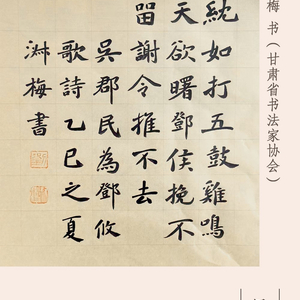 梅 书（甘肃省书法家协会）
紞如打五鼓雞鳴
天欲曙鄧侯挽不
留謝令推不去
吳郡民為鄧攸
歌詩乙巳之夏
淑梅書